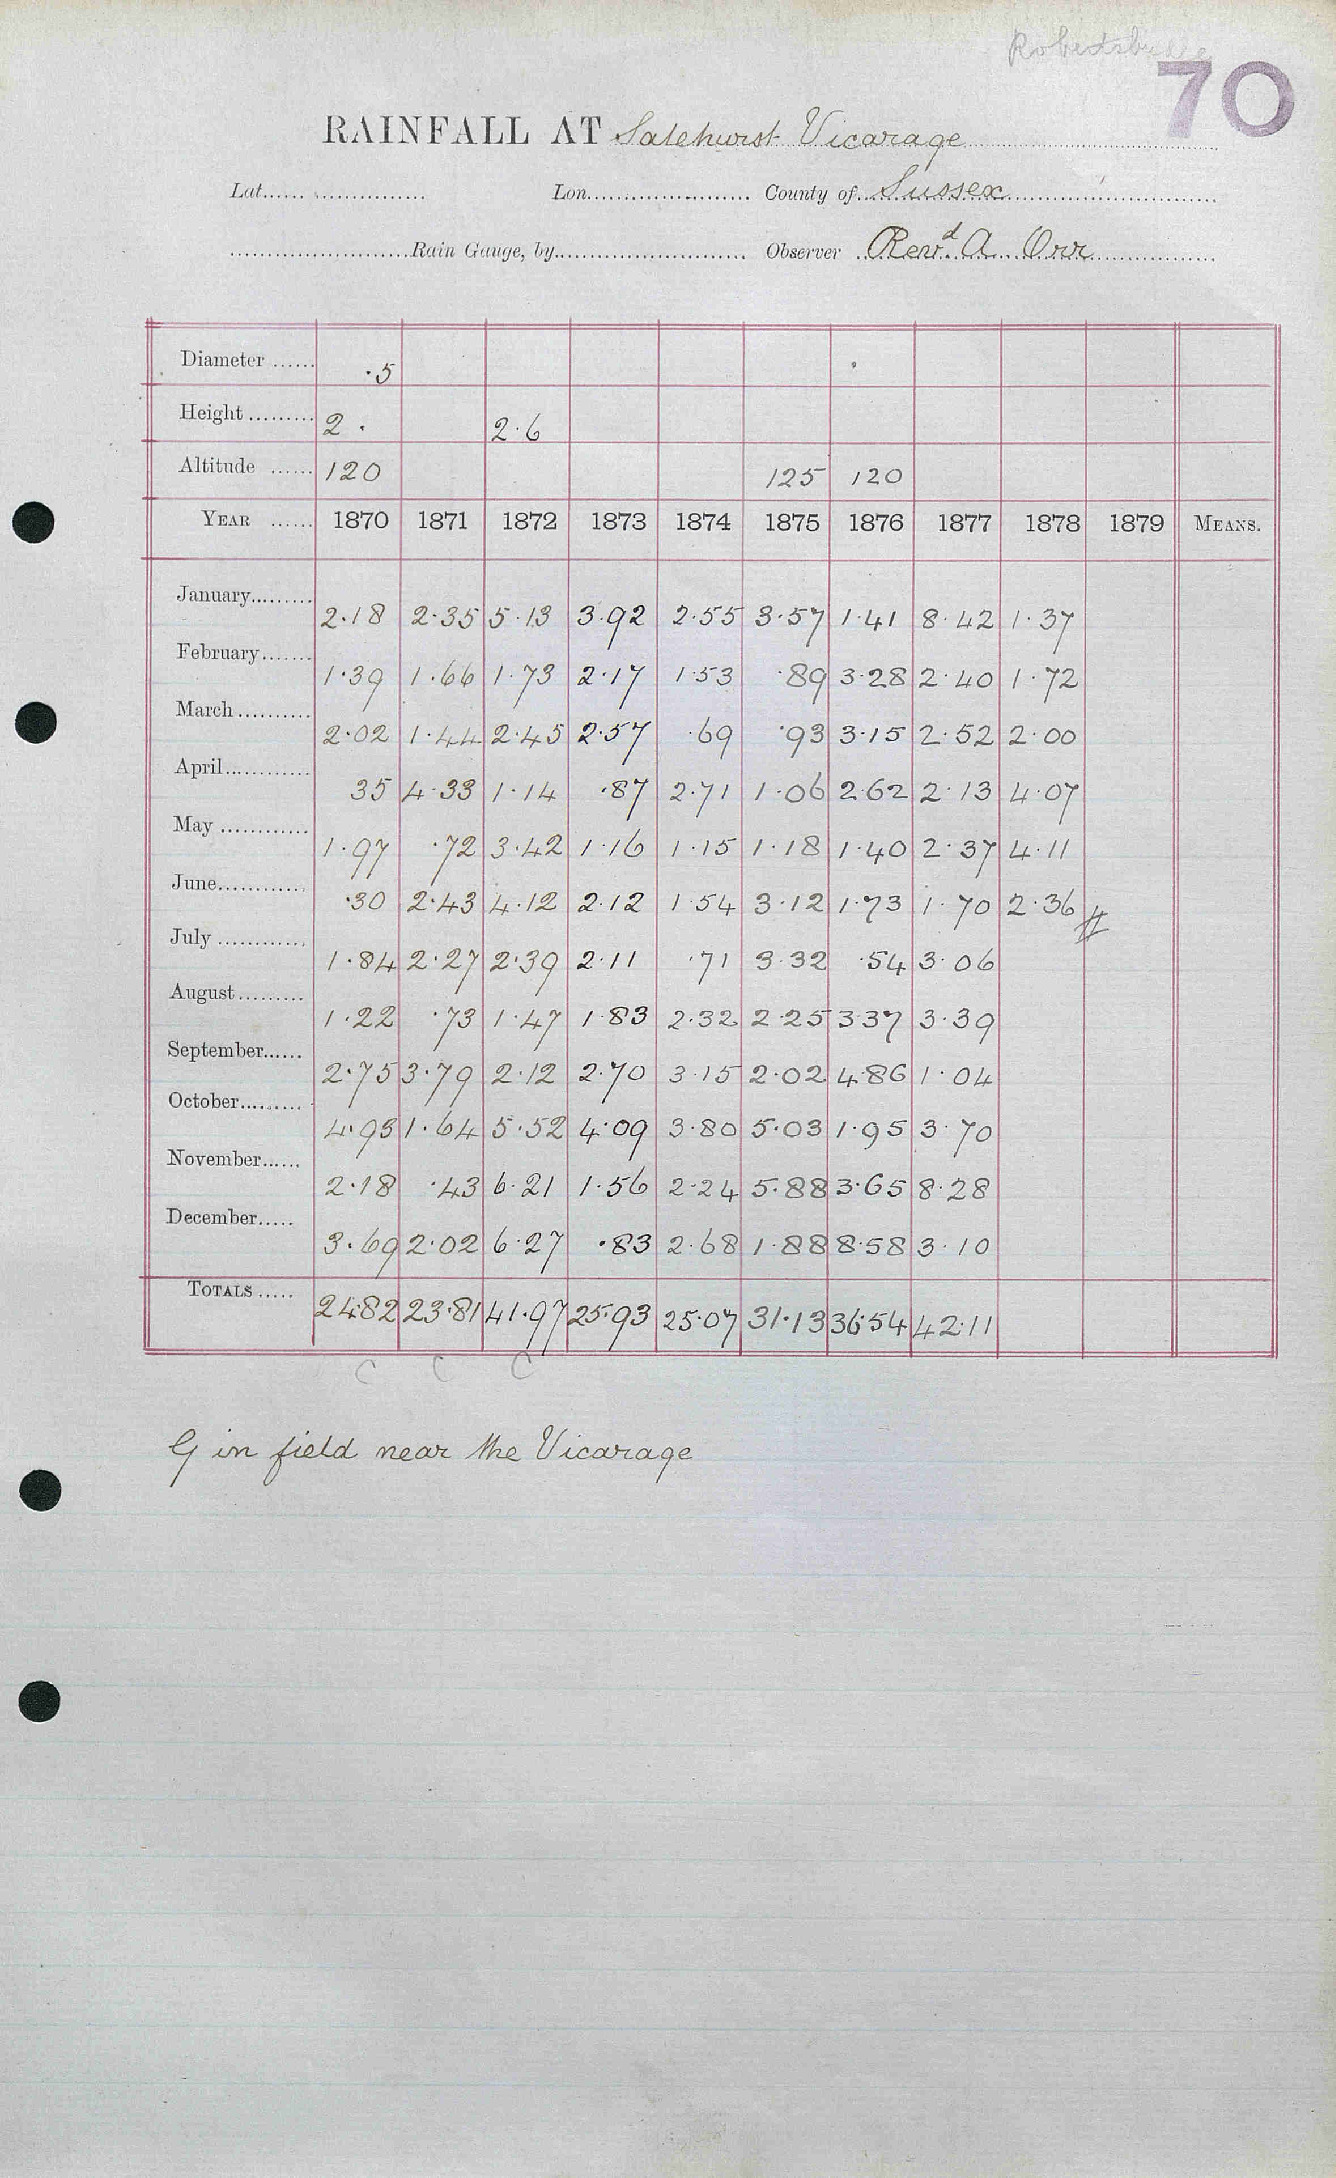 Robertsbridge
70
RAINFALL AT Salehurst Vicarage
Lat. Lon. County of Sussex
Rain Gauge, by Observer Revd A Orr
Diameter ...... ·5
Height ......... 2 · 2·6
Altitude ...... 120 125 120
YEAR ...... 1870 1871 1872 1873 1874 1875 1876 1877 1878 1879 MEANS.
January......... 2·18 2·35 5·13 3·92 2·55 3·57 1·41 8·42 1·37
February....... 1·39 1·66 1·73 2·17 1·53 ·89 3·28 2·40 1·72
March.......... 2·02 1·44 2·45 2·57 ·69 ·93 3·15 2·52 2·00
April............ 35 4·33 1·14 ·87 2·71 1·06 2·62 2·13 4·07
May ............ 1·97 ·72 3·42 1·16 1·15 1·18 1·40 2·37 4·11
June............ ·30 2·43 4·12 2·12 1·54 3·12 1·73 1·70 2·36 #
July ............ 1·84 2·27 2·39 2·11 ·71 3·32 ·54 3·06
August......... 1·22 ·73 1·47 1·83 2·32 2·25 3·37 3·39
September...... 2·75 3·79 2·12 2·70 3·15 2·02 4·86 1·04
October......... 4·93 1·64 5·52 4·09 3·80 5·03 1·95 3·70
November...... 2·18 ·43 6·21 1·56 2·24 5·88 3·65 8·28
December..... 3·69 2·02 6·27 ·83 2·68 1·88 8·58 3·10
TOTALS ..... 24·82 23·81 41·97 25·93 25·07 31·13 36·54 42·11
C C C
G in field near the Vicarage